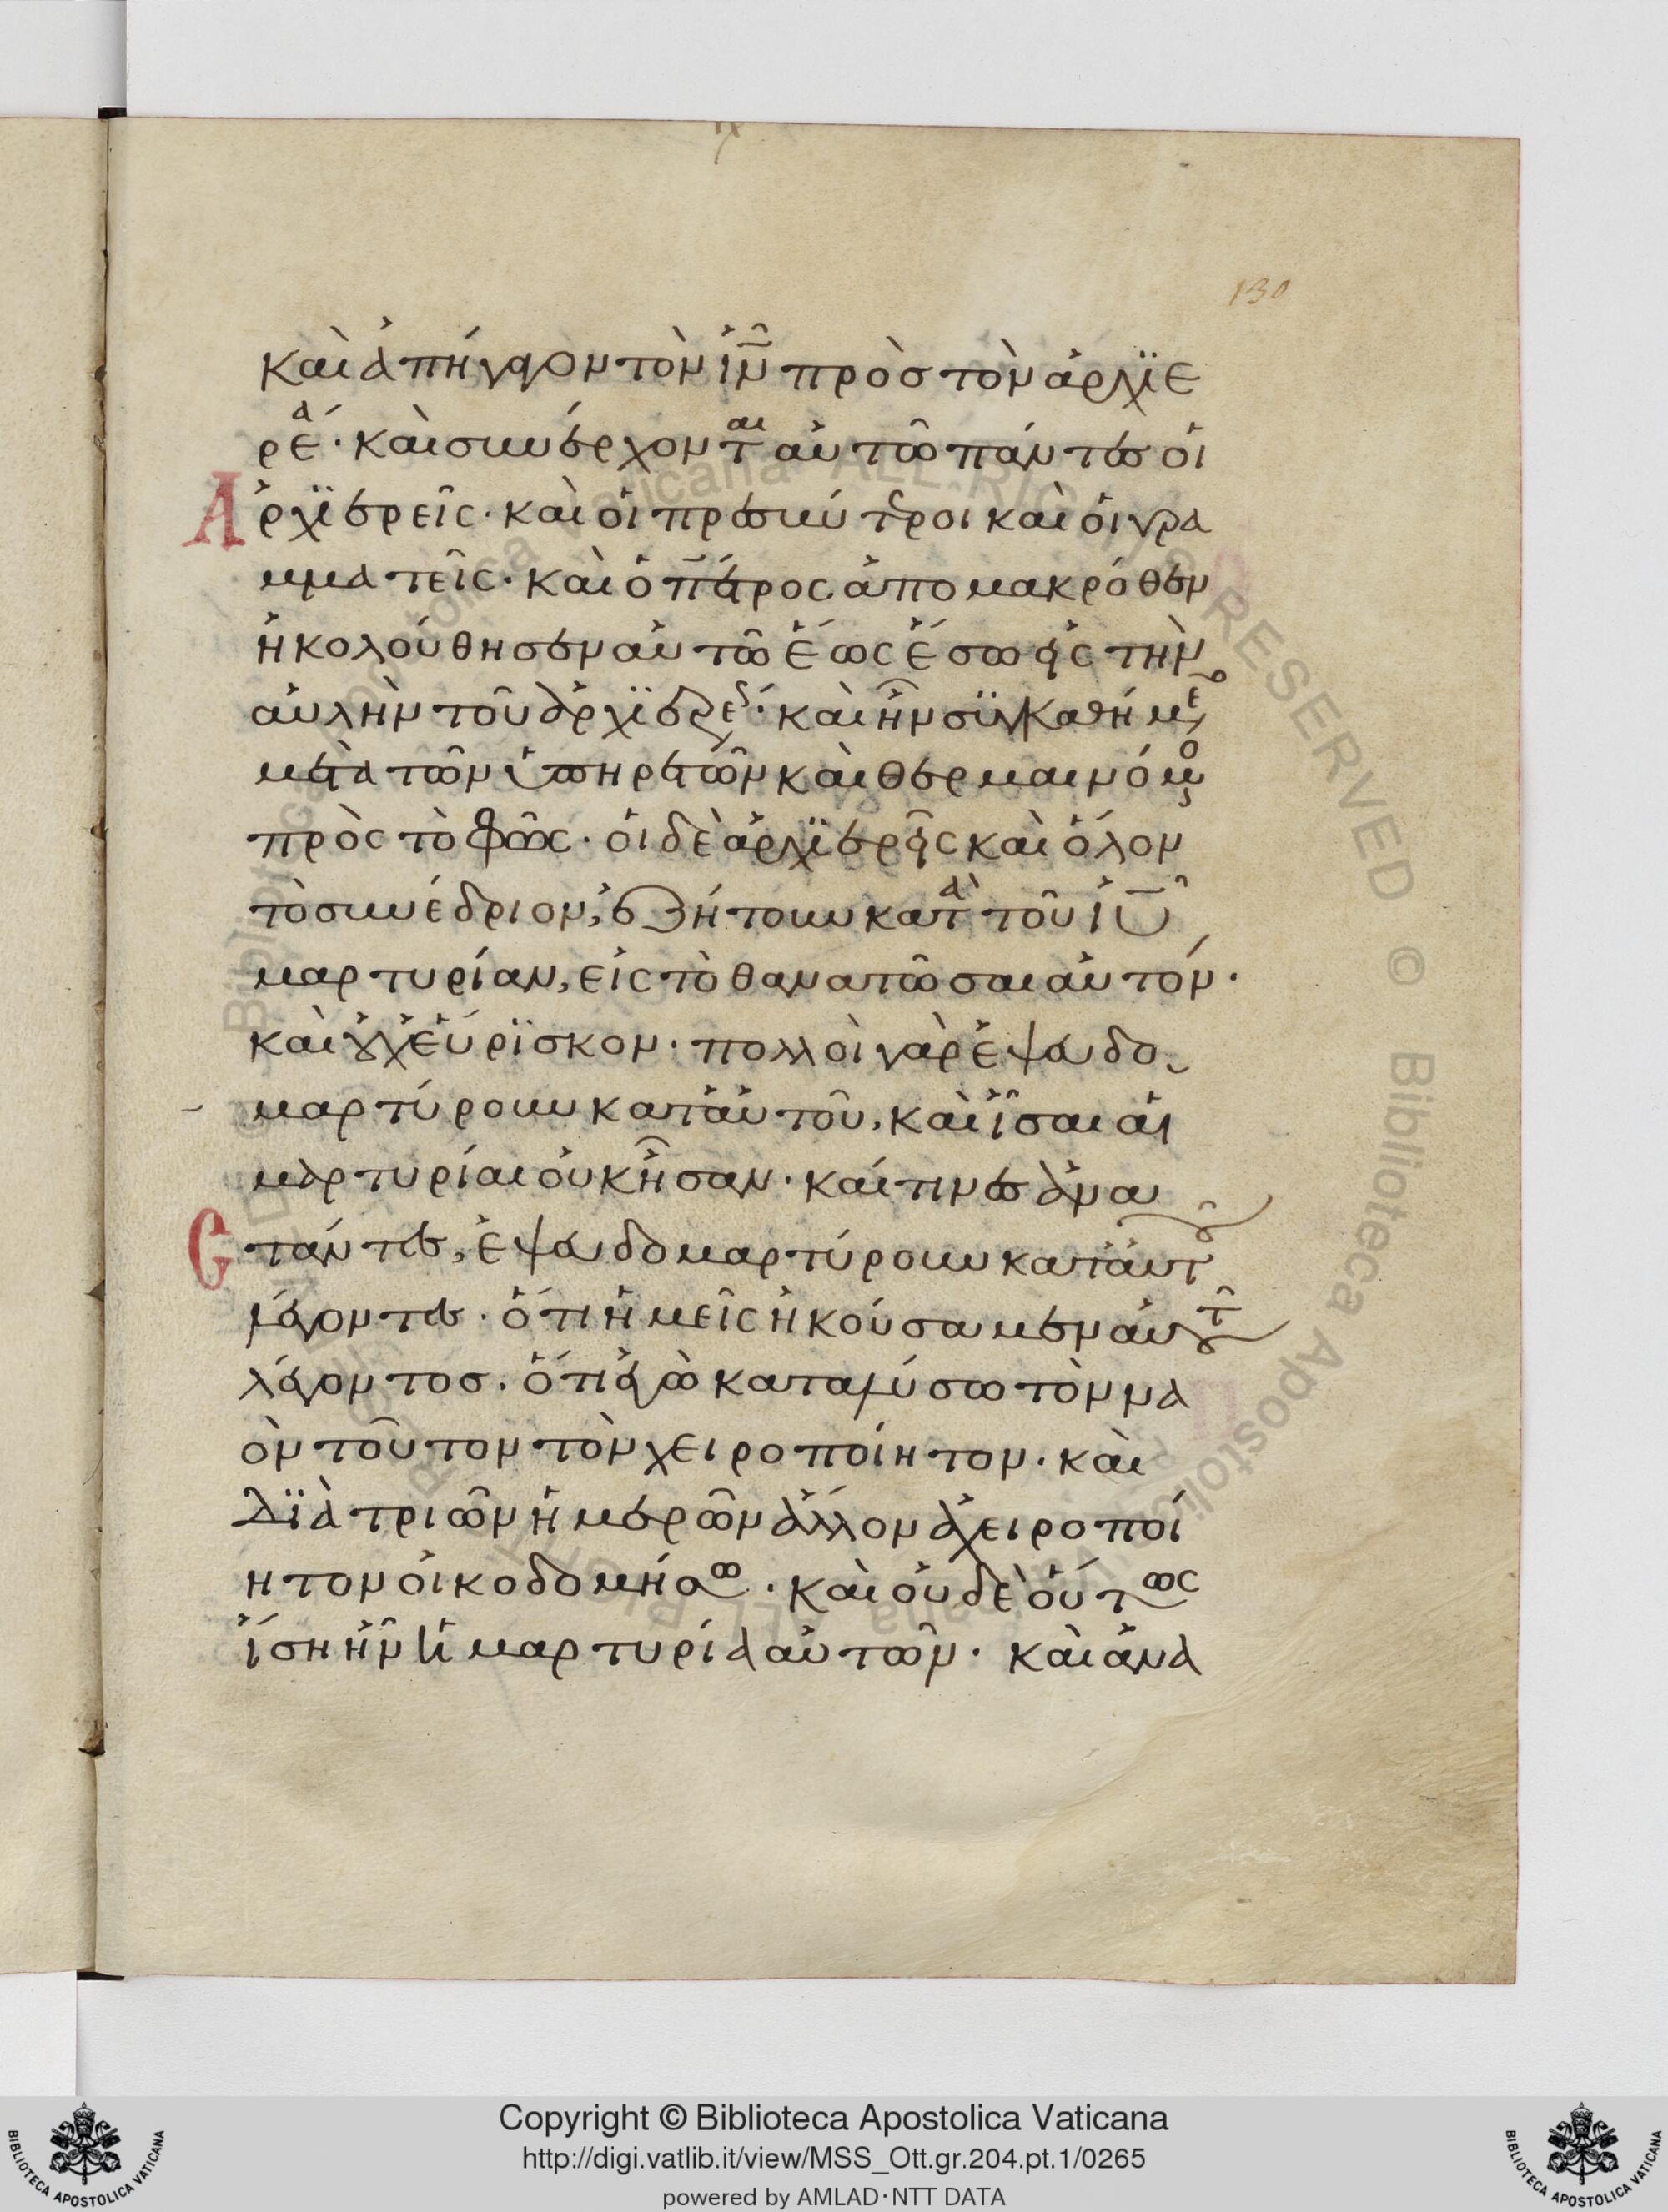 130
καὶ ἀπήγαγον τὸν ἰν̅ πρὸσ τὸν ἀρχϊε
ρέα· καὶ συνέρχονται αὐτῶ πάντεσ οἱ
Αρχϊερεῖς· καὶ οἱ πρεσβύτεροι καὶ οἱ γρα
μματεῖς· καὶ ὁ πέτρος ἀπο μακρόθεν
ἠκολούθησεν αὐτῶ ἕως ἔσω εἰς τὴν
αὐλὴν τοῦ ἀρχϊερέως· καὶ ἦν συγκαθήμενο
μετὰ τῶν ὑπηρετῶν καὶ θερμαινόμενος
πρὸς τὸ φῶς· οἱ δὲ ἀρχϊερεῖς καὶ ὅλον
τὸ συνέδριον, ἐζήτουν κατὰ τοῦ ἰυ̅
μαρτυρίαν, εἰς τὸ θανατῶσαι αὐτόν·
καὶ οὐχ εὕρϊσκον· πολλοὶ γὰρ ἐψευδο
μαρτύρουν κατ' αὐτοῦ, καὶ ἶσαι αἱ
μαρτυρίαι οὐκ ἦσαν· καί τινεσ ἀνα
Σταντεσ, ἐψευδομαρτύρουν κατ' αὐτοῦ
λέγοντεσ· ὅτι ἡμεῖς ἠκούσαμεν αὐτοῦ
λέγοντοσ· ὅτι ἐγὼ καταλύσω τὸν να
ὸν τοῦτον τὸν χειροποίητον· καὶ
Δϊὰ τριῶν ἡμερῶν ἄλλον ἀχειροποί
ητον οἰκοδομήσω· καὶ οὐδὲ οὕτως
ἴση ἦν ἡ μαρτυρία αὐτῶν· καὶ ἀνα
Copyright © Biblioteca Apostolica Vaticana
http://digi.vatlib.it/view/MSS_Ott.gr.204.pt.1/0265
powered by AMLAD·NTT DATA
BIBLIOTECA APOSTOLICA VATICANA
BIBLIOTECA APOSTOLICA VATICANA